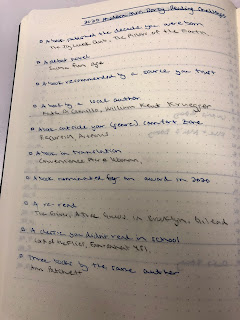 2020 Modern Mrs. Darcy Reading Challenge
A book published the decade you were born
The Joy Luck Club, The Pillars of the Earth
A debut novel
Such a Fun Age
A book recommended by a source you trust
A book by a local author
Kate DiCamillo, William Kent Krueger
A book outside your (genre) comfort zone
A book in translation
Convenience Store Woman
A book nominated for an award in 2020
A re-read
The Giver, A Tree Grows in Brooklyn,
A classic you didn't read in school
Lord of the Flies, Fahrenheit 451,
Three books by the same author
Ann Patchett